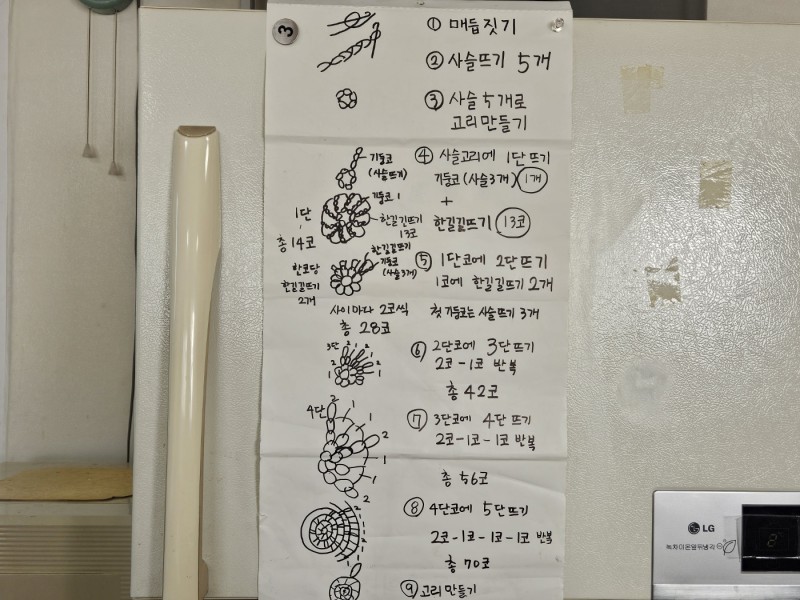 3
① 매듭짓기
② 사슬뜨기 5개
③ 사슬 5개로
고리만들기
④ 사슬고리에 1단뜨기
기둥코(사슬3개) 1개
+
한길긴뜨기 13코
기둥코
(사슬뜨기)
기둥코 1
한길긴뜨기
13코
1단
총 14코
⑤ 1단코에 2단뜨기
1코에 한길긴뜨기 2개
첫 기둥코는 사슬뜨기 3개
한길긴뜨기
기둥코
(사슬3개)
한코당
한길긴뜨기
2개
사이마다 2코씩
총 28코
⑥ 2단코에 3단뜨기
2코-1코 반복
총 42코
3단 2 1 2 1 2 1
⑦ 3단코에 4단뜨기
2코-1코-1코 반복
총 56코
4단 2
1
1
2
1
1
2
⑧ 4단코에 5단뜨기
2코-1코-1코-1코 반복
총 70코
⑨ 고리만들기
LG
8